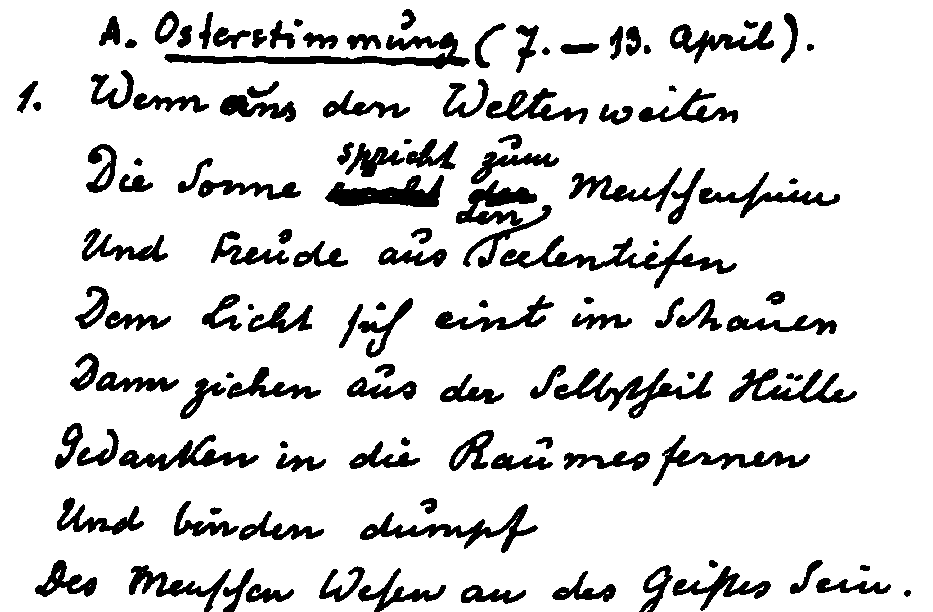 A. Osterstimmung (7. – 13. April).
1. Wenn aus den Weltenweiten
Die Sonne spricht zum Menschensinn
Und Freude aus den Seelentiefen
Dem Licht sich eint im Schauen
Dann ziehen aus der Selbstheit Hülle
Gedanken in die Raumesfernen
Und binden dumpf
Des Menschen Wesen an des Geistes Sein.